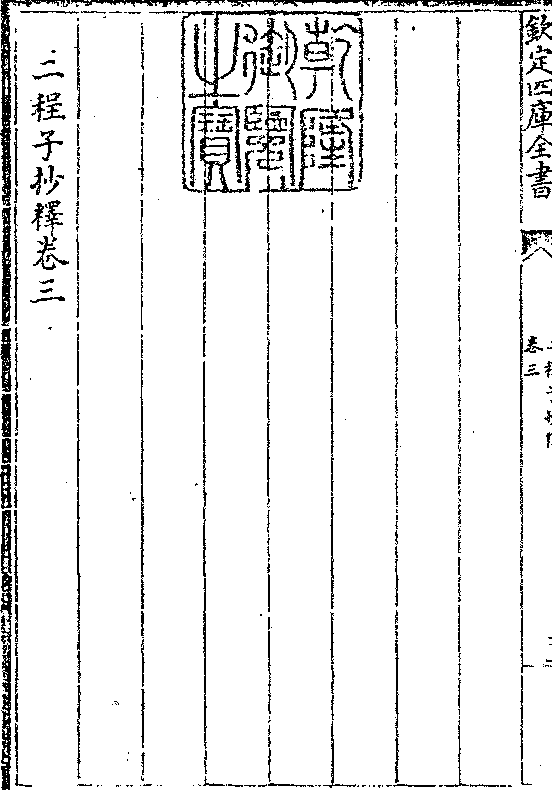 欽定四庫全書
二程子抄釋
卷三
乾隆
御覽
之寶
二程子抄釋卷三